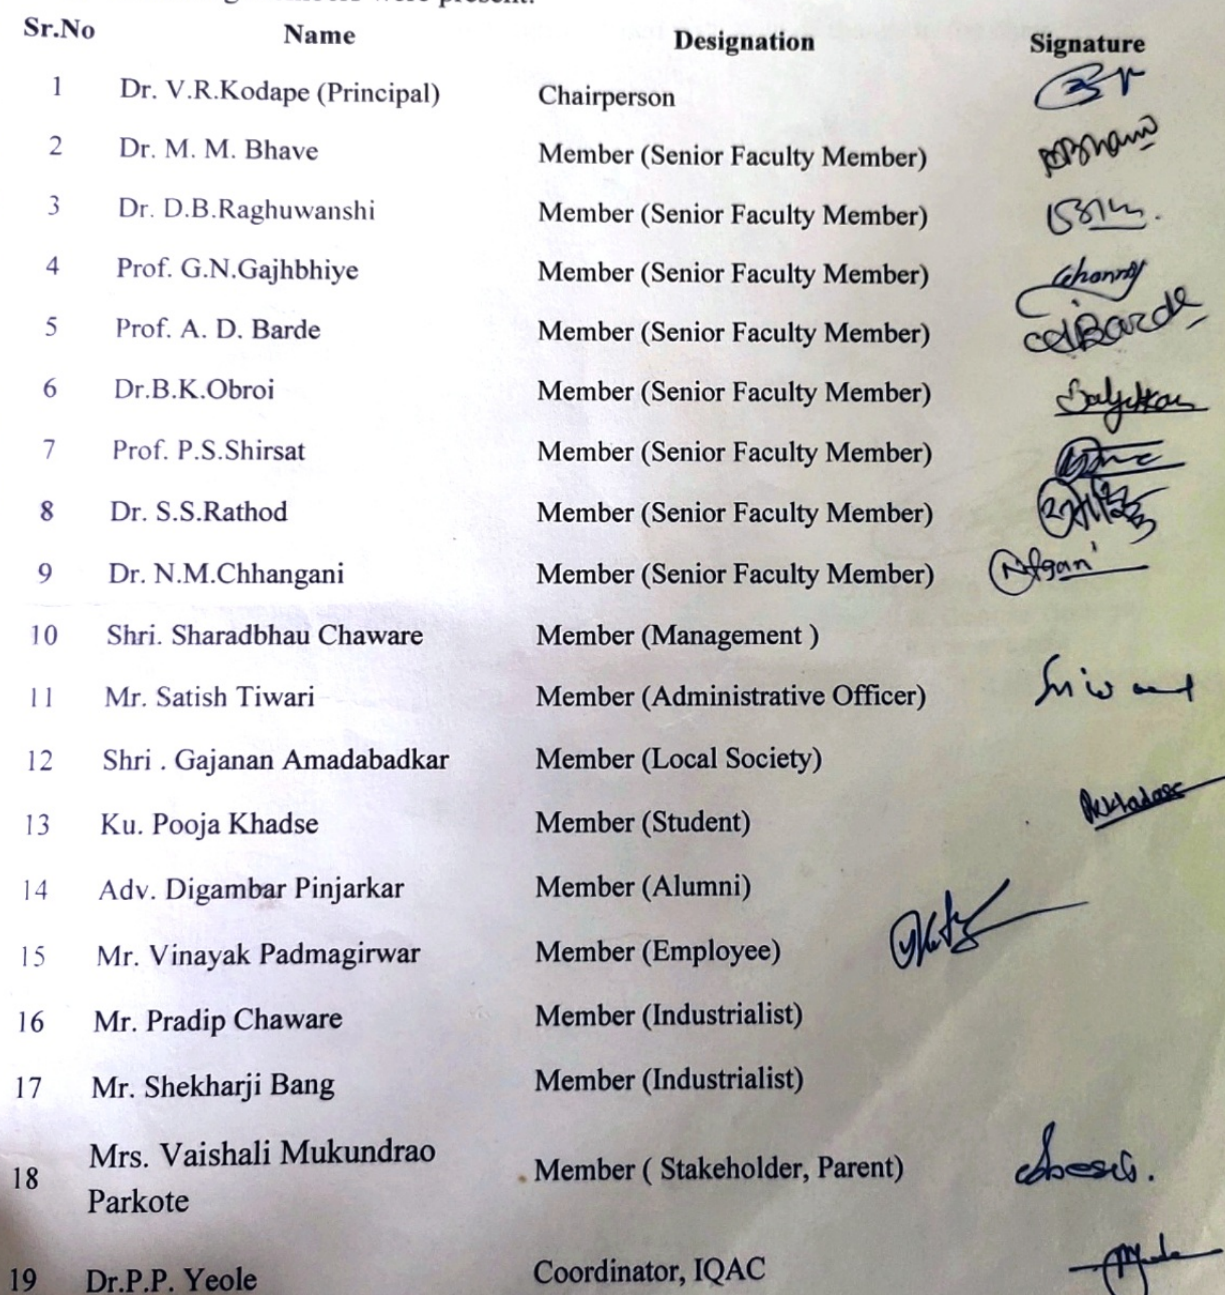 were present.
Sr.No Name Designation Signature
1 Dr. V.R.Kodape (Principal) Chairperson
2 Dr. M. M. Bhave Member (Senior Faculty Member)
3 Dr. D.B.Raghuwanshi Member (Senior Faculty Member)
4 Prof. G.N.Gajhbhiye Member (Senior Faculty Member)
5 Prof. A. D. Barde Member (Senior Faculty Member) ADBarde
6 Dr.B.K.Obroi Member (Senior Faculty Member)
7 Prof. P.S.Shirsat Member (Senior Faculty Member)
8 Dr. S.S.Rathod Member (Senior Faculty Member)
9 Dr. N.M.Chhangani Member (Senior Faculty Member)
10 Shri. Sharadbhau Chaware Member (Management )
11 Mr. Satish Tiwari Member (Administrative Officer)
12 Shri . Gajanan Amadabadkar Member (Local Society)
13 Ku. Pooja Khadse Member (Student)
14 Adv. Digambar Pinjarkar Member (Alumni)
15 Mr. Vinayak Padmagirwar Member (Employee)
16 Mr. Pradip Chaware Member (Industrialist)
17 Mr. Shekharji Bang Member (Industrialist)
18 Mrs. Vaishali Mukundrao Member ( Stakeholder, Parent)
Parkote
19 Dr.P.P. Yeole Coordinator, IQAC